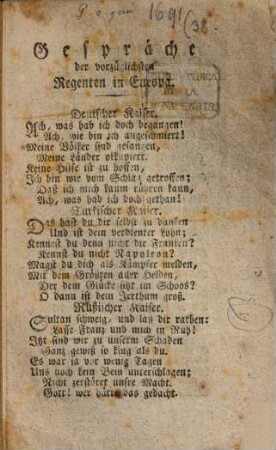 P. o. germ. 1691 (38
Gespräche
der vorzüglichsten
Regenten in Europa.
Deutscher Kaiser.
Ach, was hab ich doch begangen!
Ach, wie bin ich angeschmiert!
Meine Völker sind gefangen,
Meine Länder okkupirt.
Keine Hilfe ist zu hoffen,
Ich bin wie vom Schlag getroffen;
Daß ich mich kaum rühren kann,
Ach, was hab ich doch gethan!
Türkischer Kaiser.
Das hast du dir selbst zu danken
Und ist dein verdienter Lohn;
Kennest du denn nicht die Franken?
Kennst du nicht Napoleon?
Magst du dich als Kämpfer melden,
Mit dem Größten aller Helden,
Der dem Glücke sitzt im Schoos?
O dann ist dein Irrthum groß.
Rußischer Kaiser.
Sultan schweig, und laß dir rathen:
Lasse Franz und mich in Ruh!
Itzt sind wir zu unserm Schaden
Ganz gewiß so klug als du.
Es war ja vor wenig Tagen
Uns noch kein Bein unterschlagen;
Nicht zerstöret unsre Macht.
Gott! wer hätte das gedacht.